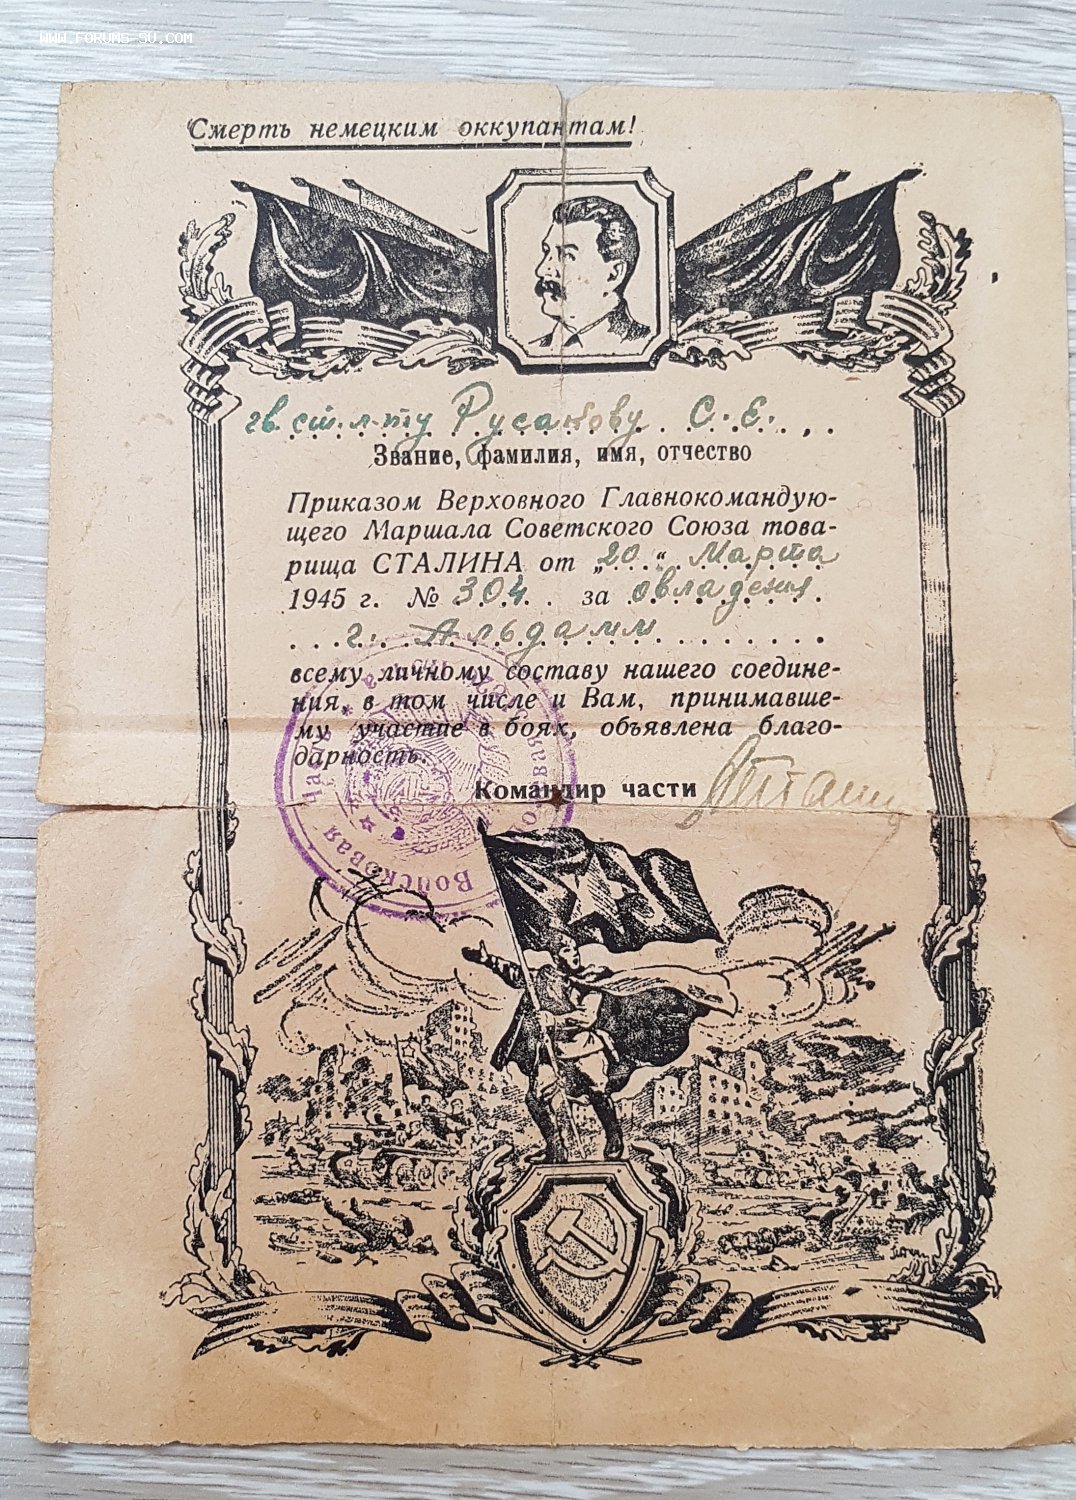 WWW.FORUMS-SU.COM
Смерть немецким оккупантам!
гв. ст. л-ту Русанову С. Е.
Звание, фамилия, имя, отчество
Приказом Верховного Главнокомандую-
щего Маршала Советского Союза това-
рища СТАЛИНА от „20“ Марта
1945 г. № 304 за овладения
г. Альдамм
всему личному составу нашего соедине-
ния, в том числе и Вам, принимавше-
му участие в боях, объявлена благо-
дарность.
Командир части
Войсковая часть Полевая